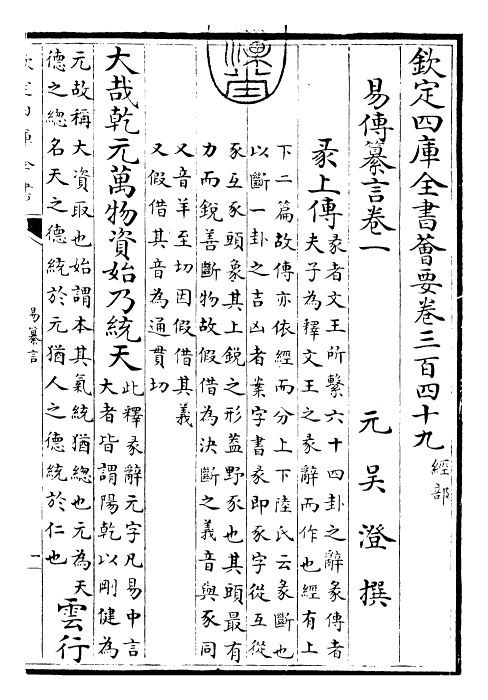 欽定四庫全書薈要卷三百四十九 經部
易傳纂言卷一
元 吳澄 撰
彖上傳
彖者文王所繫六十四卦之辭彖傳者
夫子為釋文王之彖辭而作也經有上
下二篇故傳亦依經而分上下陸氏云彖斷也
以斷一卦之吉凶者案字書彖即豕字從互從
豕互豕頭象其上銳之形蓋野豕也其頭最有
力而銳善斷物故假借為決斷之義音與豕同
又音羊至切因假借其義
又假借其音為通貫切
大哉乾元萬物資始乃統天
此釋彖辭元字凡易中言
大者皆謂陽乾以剛健為
元故稱大資取也始謂本其氣統猶總也元為天
德之總名天之德統於元猶人之德統於仁也
雲行
四庫全書
易纂言